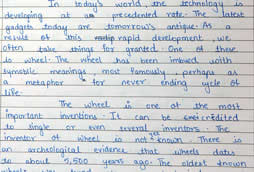 In today's world, the technology is
developing at an precedented rate. The latest
gadgets today are tomorrow's antique. As a
result of this rapid development, we
often take things for granted. One of these
is wheel. The wheel has been imbued with
symbolic meanings, most famously, perhaps as
a metaphor for never ending cycle of
life.
The wheel is one of the most
important inventions. It can be credited
to single or even several inventors. The
inventor of wheel is not known. There is
an archeological evidence that wheels date
to about 5,500 years ago. The oldest known